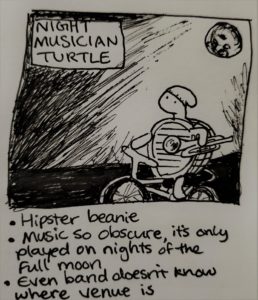 NIGHT
MUSICIAN
TURTLE
• Hipster beanie
• Music so obscure, it's only
played on nights of the
full moon
• Even band doesn't know
where venue is